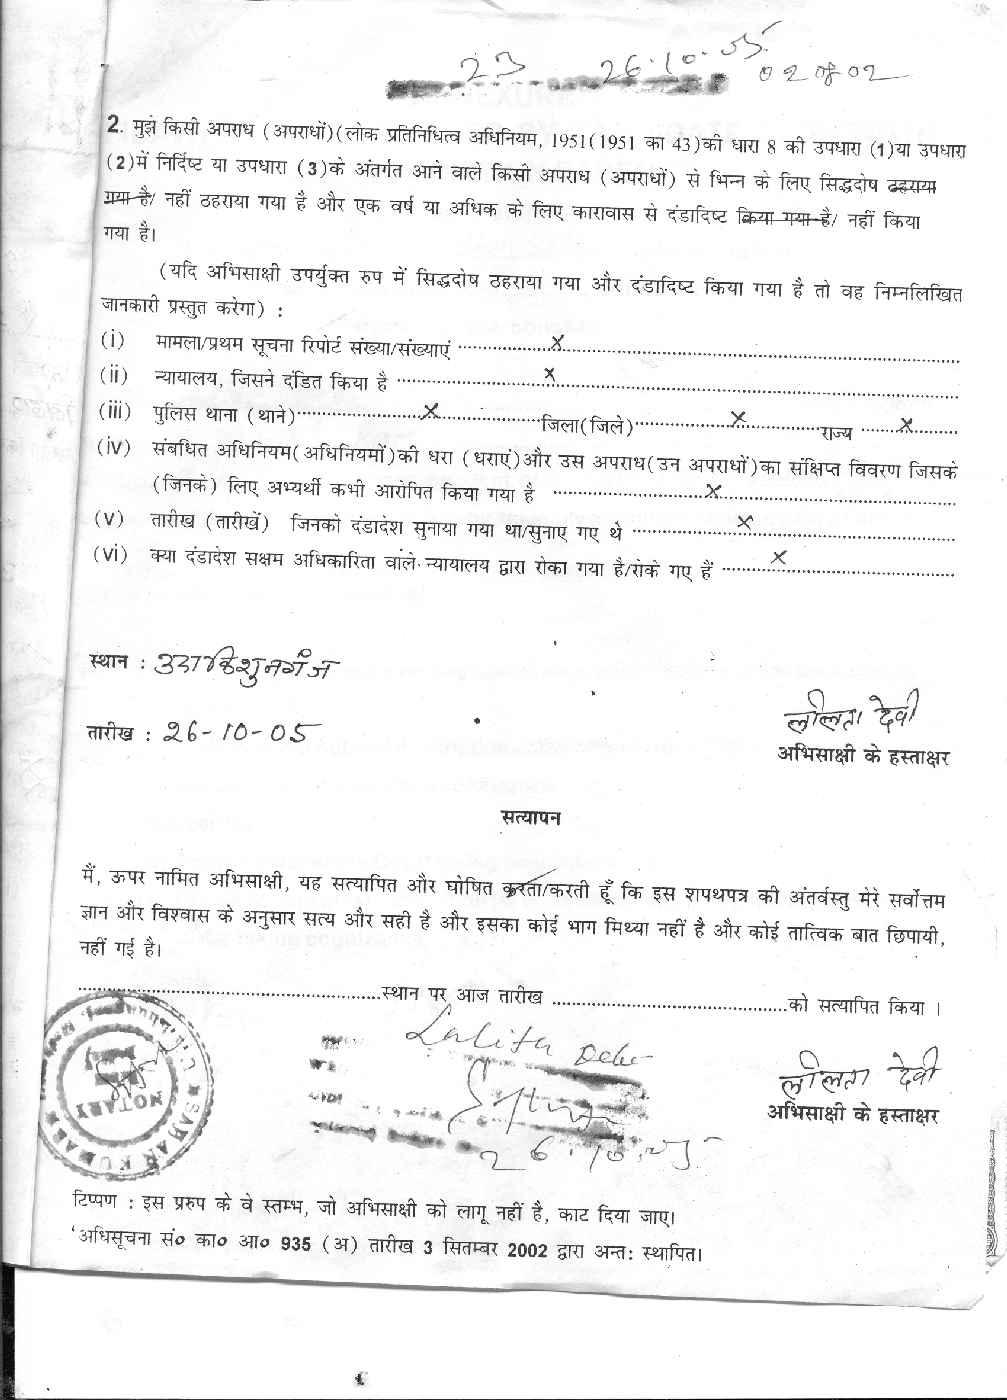 23 26.10.05 02 of 02
2. मुझे किसी अपराध (अपराधों)(लोक प्रतिनिधित्व अधिनियम, 1951(1951 का 43)की धारा 8 की उपधारा (1)या उपधारा
(2)में निर्दिष्ट या उपधारा (3)के अंतर्गत आने वाले किसी अपराध (अपराधों) से भिन्न के लिए सिद्धदोष ठहराया
गया है/ नहीं ठहराया गया है और एक वर्ष या अधिक के लिए कारावास से दंडादिष्ट किया गया है/ नहीं किया
गया है।
(यदि अभिसाक्षी उपर्युक्त रुप में सिद्धदोष ठहराया गया और दंडादिष्ट किया गया है तो वह निम्नलिखित
जानकारी प्रस्तुत करेगा) :
(i) मामला/प्रथम सूचना रिपोर्ट संख्या/संख्याएं ..........x..........
(ii) न्यायालय, जिसने दंडित किया है ..........x..........
(iii) पुलिस थाना (थाने)..........x..........जिला(जिले)..........x..........राज्य ......x......
(iv) संबधित अधिनियम(अधिनियमों)की धरा (धराएं)और उस अपराध(उन अपराधों)का संक्षिप्त विवरण जिसके
(जिनके) लिए अभ्यर्थी कभी आरोपित किया गया है ..........x..........
(v) तारीख (तारीखें) जिनको दंडादेश सुनाया गया था/सुनाए गए थे ..........x..........
(vi) क्या दंडादेश सक्षम अधिकारिता वाले न्यायालय द्वारा रोका गया है/रोके गए हैं ..........x..........
स्थान : उदाकिशुनगंज
तारीख : 26-10-05
ललिता देवी
अभिसाक्षी के हस्ताक्षर
सत्यापन
मैं, ऊपर नामित अभिसाक्षी, यह सत्यापित और घोषित करता/करती हूँ कि इस शपथपत्र की अंतर्वस्तु मेरे सर्वोत्तम
ज्ञान और विश्वास के अनुसार सत्य और सही है और इसका कोई भाग मिथ्या नहीं है और कोई तात्विक बात छिपायी,
नहीं गई है।
....................स्थान पर आज तारीख ....................को सत्यापित किया ।
Lalita Devi
ललिता देवी
अभिसाक्षी के हस्ताक्षर
NOTARY
KUMAR
26.10.05
टिप्पण : इस प्ररुप के वे स्तम्भ, जो अभिसाक्षी को लागू नहीं है, काट दिया जाए।
'अधिसूचना सं० का० आ० 935 (अ) तारीख 3 सितम्बर 2002 द्वारा अन्त: स्थापित।